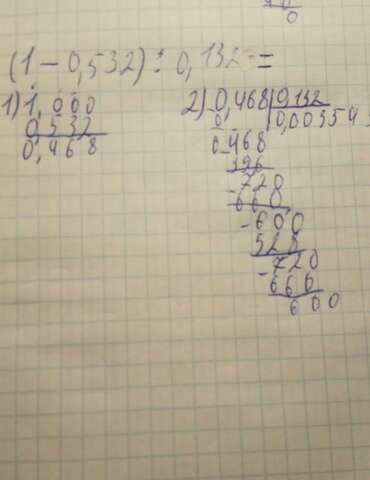 0
(1 - 0,532) : 0,132 =
1) 1,000
0 532
0,468
2) 0,468 | 0,132
0
0,00354
0 468
396
- 720
660
- 600
528
- 720
660
600